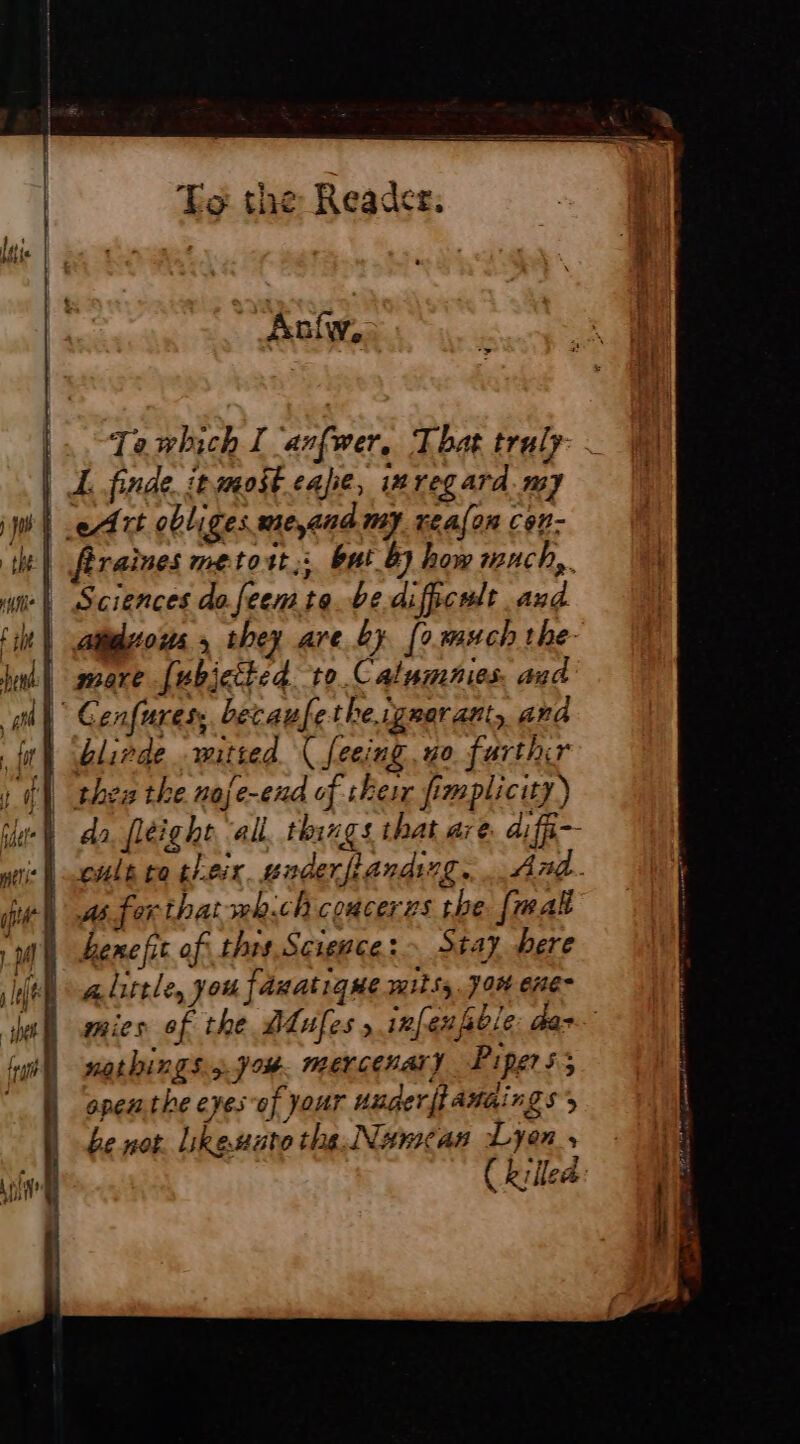 To the Reader.
Anſw.
To which I anſwer, That truly
I finde it most easie, in regard my
Art obliges me, and my reaſon con-
ſtraines me to it; but by how much,
Sciences do ſeem to be difficult and
arduous, they are by ſo much the
more ſubjected to Calumnies and
Cenſures, becauſe the ignorant, and
blinde witted (ſeeing no further
then the noſe-end of their ſimplicity)
do ſleight all things that are diffi-
cult to their underſtanding. And
as for that which concerns the ſmall
benefit of this Science: Stay here
a little, you fanatique wits, you ene-
mies of the Muſes, inſenſible do-
nothings, you mercenary Pipers;
open the eyes of your underſtandings,
be not like unto the Nemean Lyon,
(killed